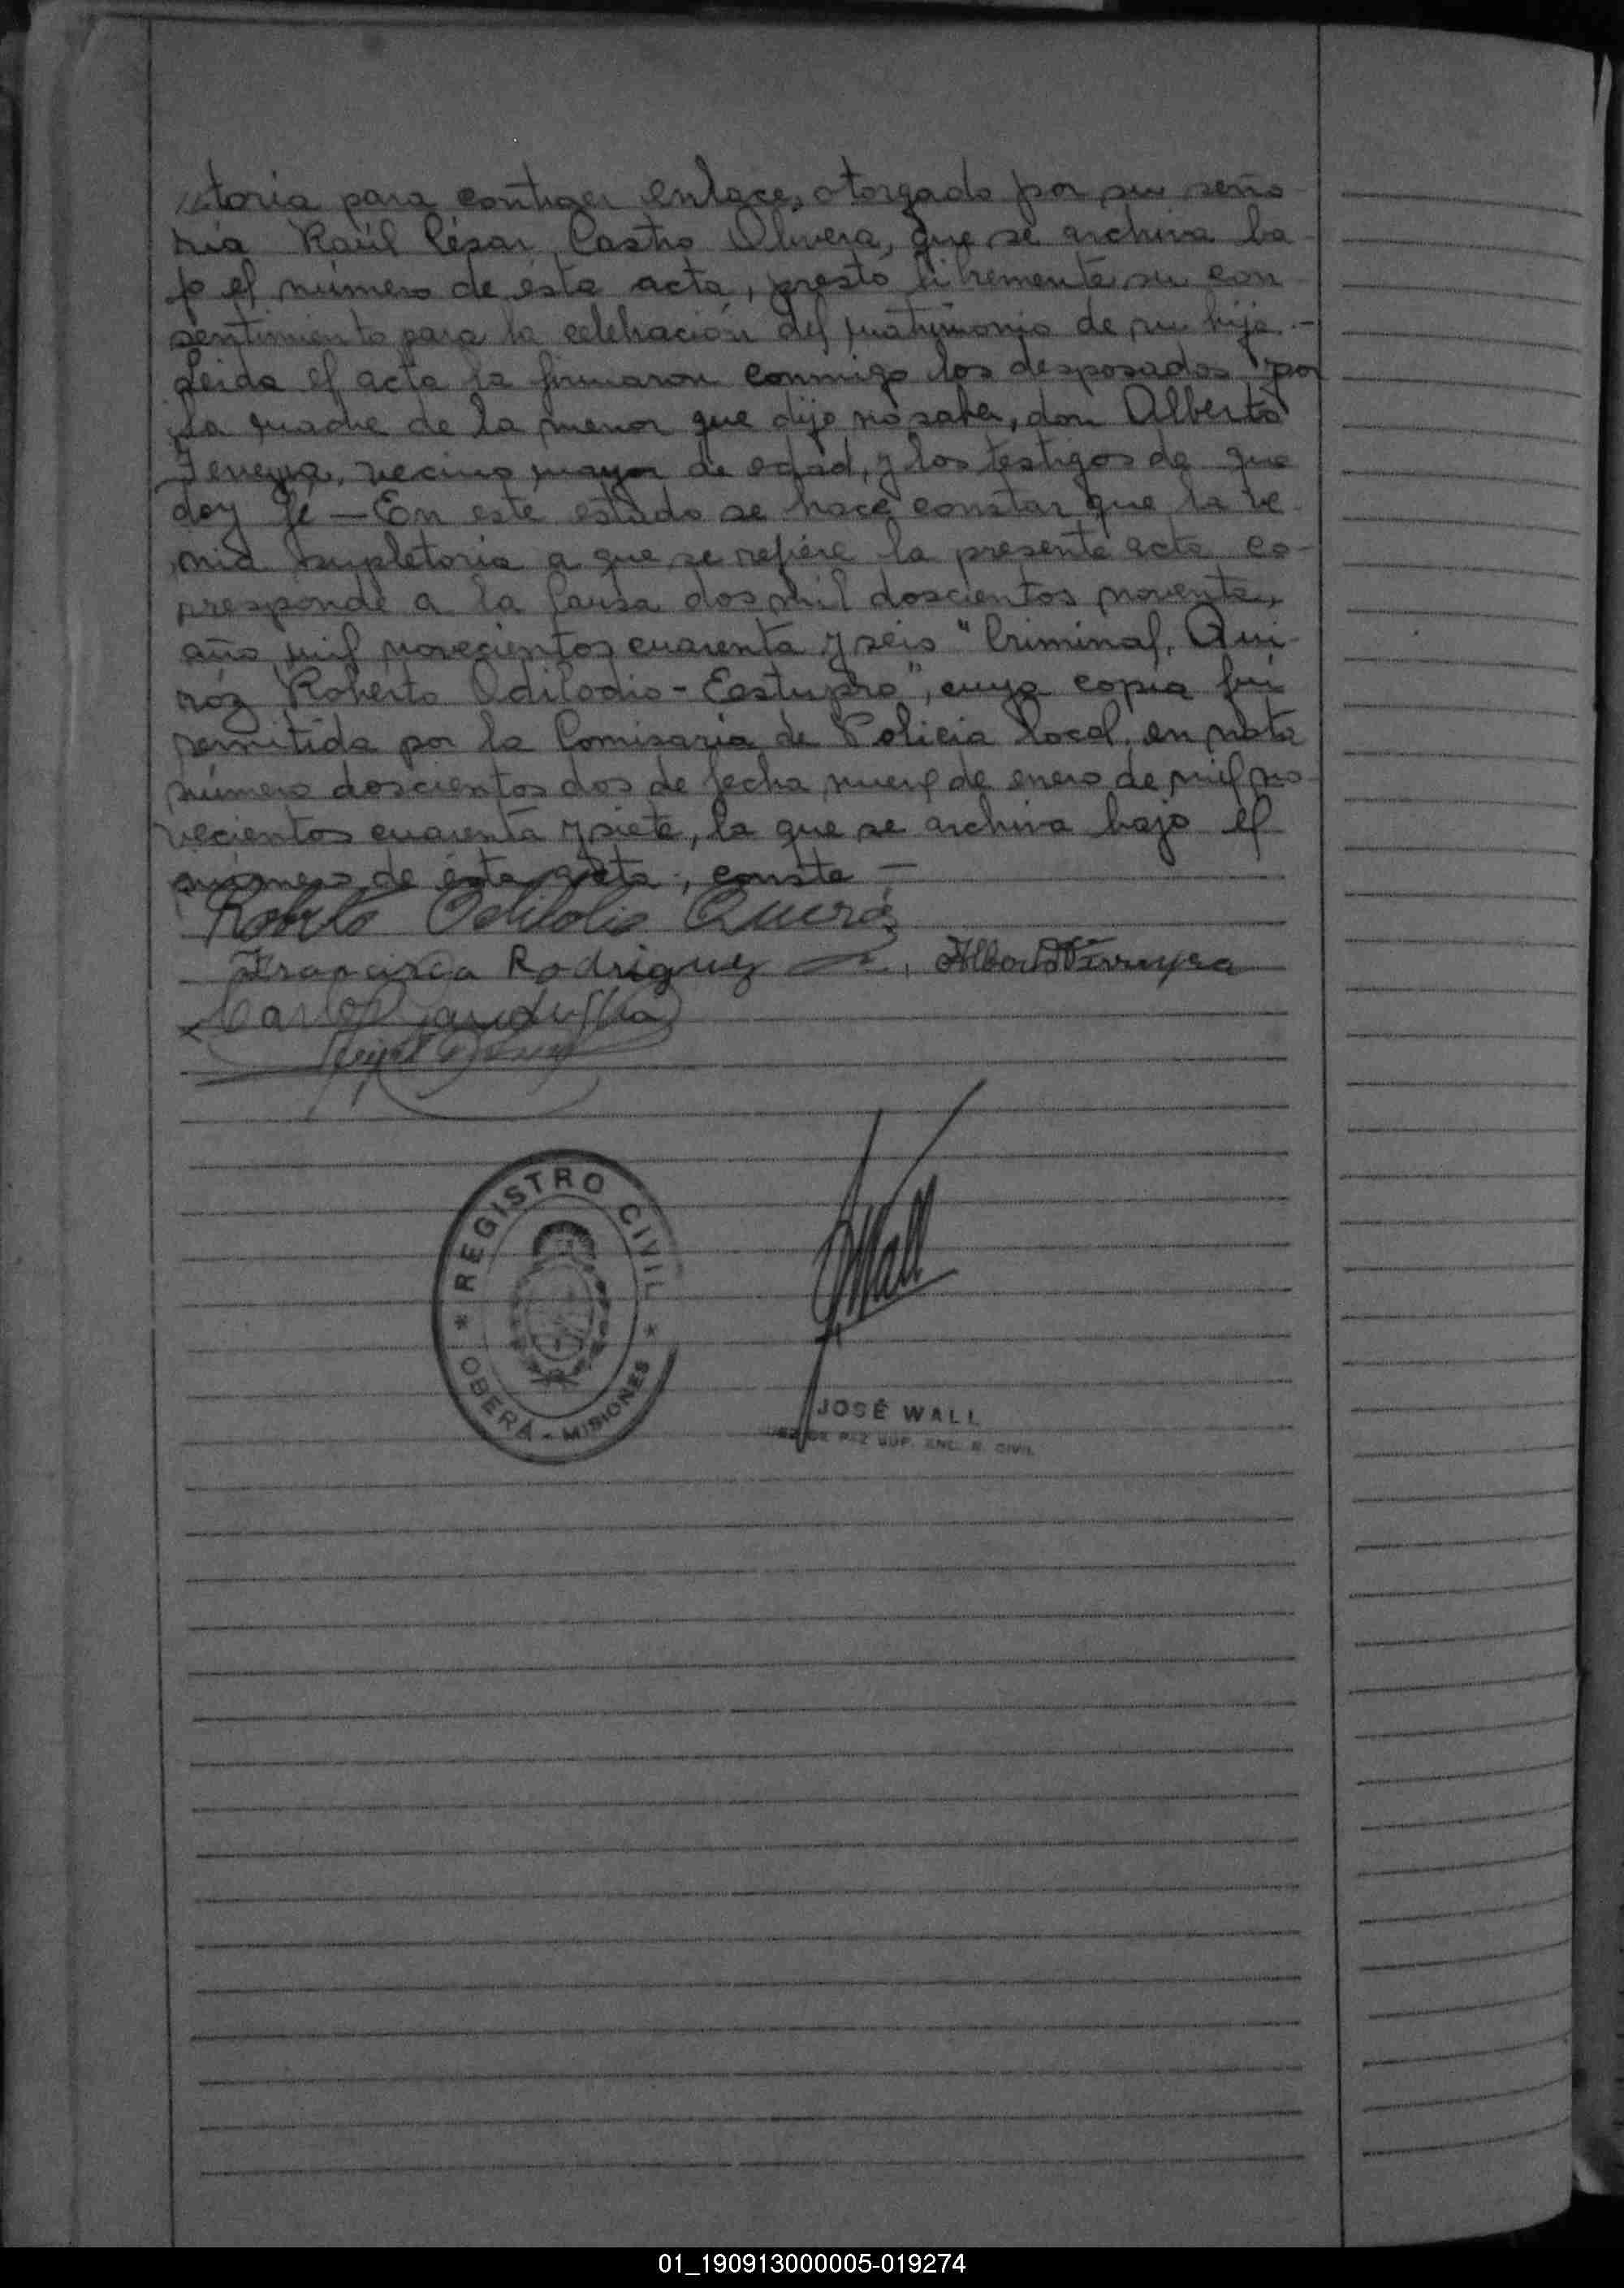 //toria para contraer enlace, otorgado por su seño
ría Raúl César Castro Olivera, que se archiva ba
jo el número de ésta acta, prestó libremente su con
sentimiento para la celebración del matrimonio de su hija.-
Leida el acta la firmaron conmigo los desposados por
la madre de la menor que dijo no saber, don Alberto
Ferreyra, vecino mayor de edad, y los testigos de que
doy fé — En este estado se hace constar que la ve
nia supletoria a que se refiere la presente acta co-
rresponde a la Causa dos mil doscientos noventa,
año mil novecientos cuarenta y seis "Criminal. Qui-
róz Roberto Odilodio - Estupro", cuya copia fué
remitida por la Comisaría de Policia local, en nota
número doscientos dos de fecha nueve de enero de mil no-
vecientos cuarenta y siete, la que se archiva bajo el
número de ésta acta, conste —
Roberto Odilolio Quiróz
Francisca Rodriguez Alberto Ferreyra
Carlos
REGISTRO CIVIL
* OBERÁ - MISIONES *
JWall
JOSÉ WALL
JUEZ DE PAZ SUP. ENC. R. CIVIL
01_190913000005-019274